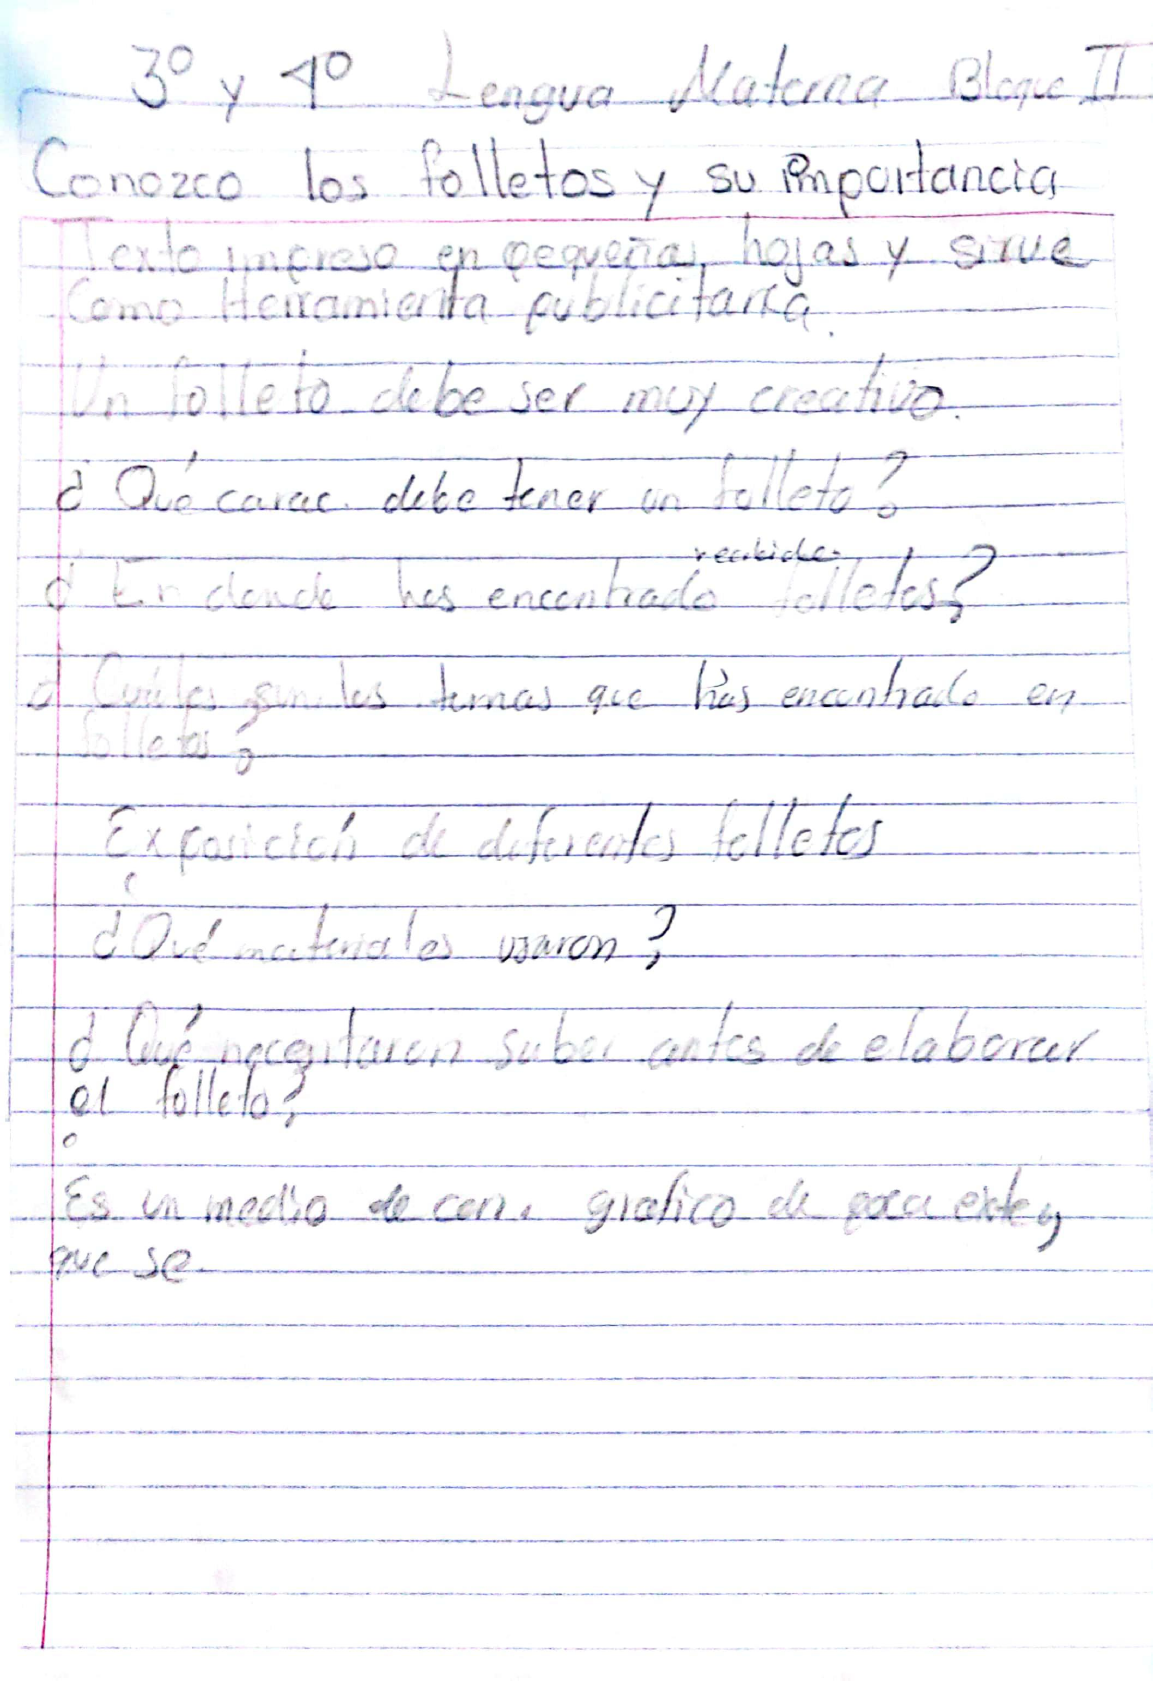 3º y 4º Lengua Materna Bloque II
Conozco los folletos y su importancia
Texto impreso en pequeñas hojas y sirve
como Herramienta publicitaria.
Un folleto debe ser muy creativo.
¿Qué carac. debe tener un folleto?
recibido
¿En donde has encontrado folletos?
¿Cuáles son los temas que has encontrado en
folletos?
Exposición de diferentes folletos
¿Qué materiales usaron?
¿Qué necesitaron saber antes de elaborar
el folleto?
Es un medio de com. grafico de poca
que se